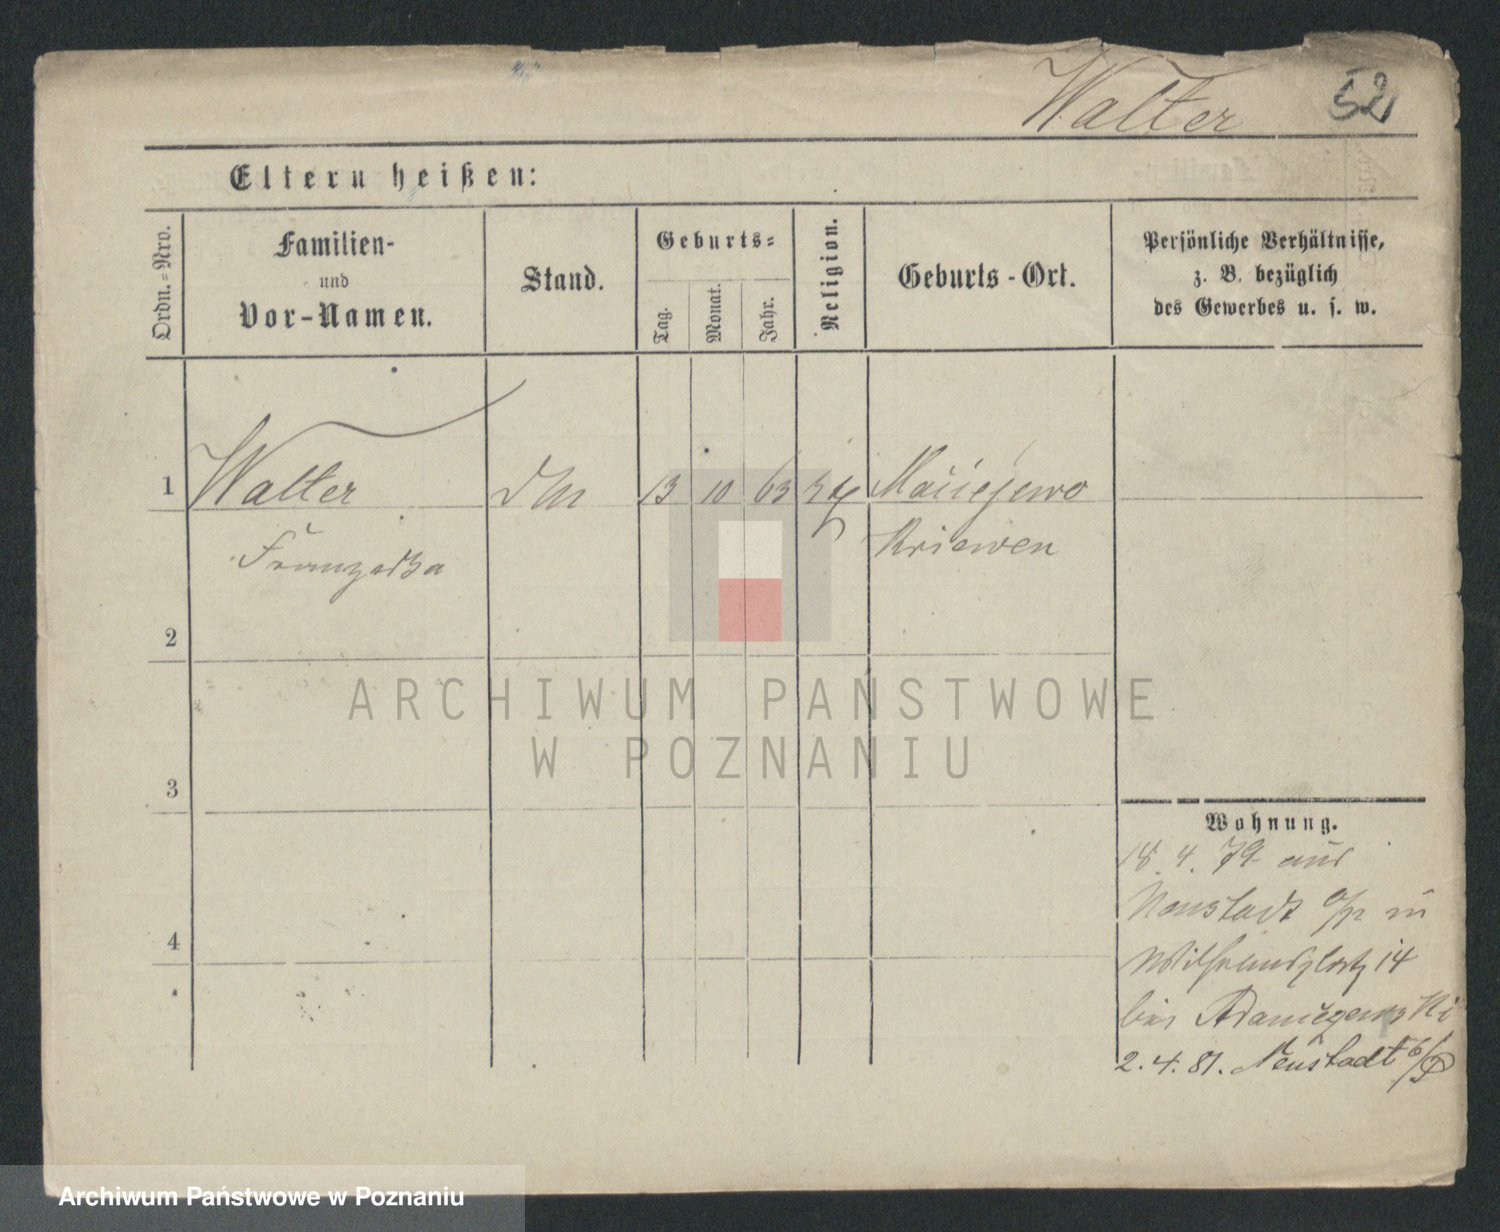 Walter 52
Eltern heißen:
Ordn.-Nro.
Familien-
und
Vor-Namen.
Stand.
Geburts-
Tag.
Monat.
Jahr.
Religion.
Geburts-Ort.
Persönliche Verhältnisse,
z. B. bezüglich
des Gewerbes u. s. w.
1 Walter 13 10 63 Maciejewo
Franzeska Kriewen
2
3
4
Wohnung.
18. 4. 79 aus
Neustadt in
Wilhelmsplatz 14
bei
2. 4. 81. Neustadt b/P
ARCHIWUM PAŃSTWOWE
W POZNANIU
Archiwum Państwowe w Poznaniu